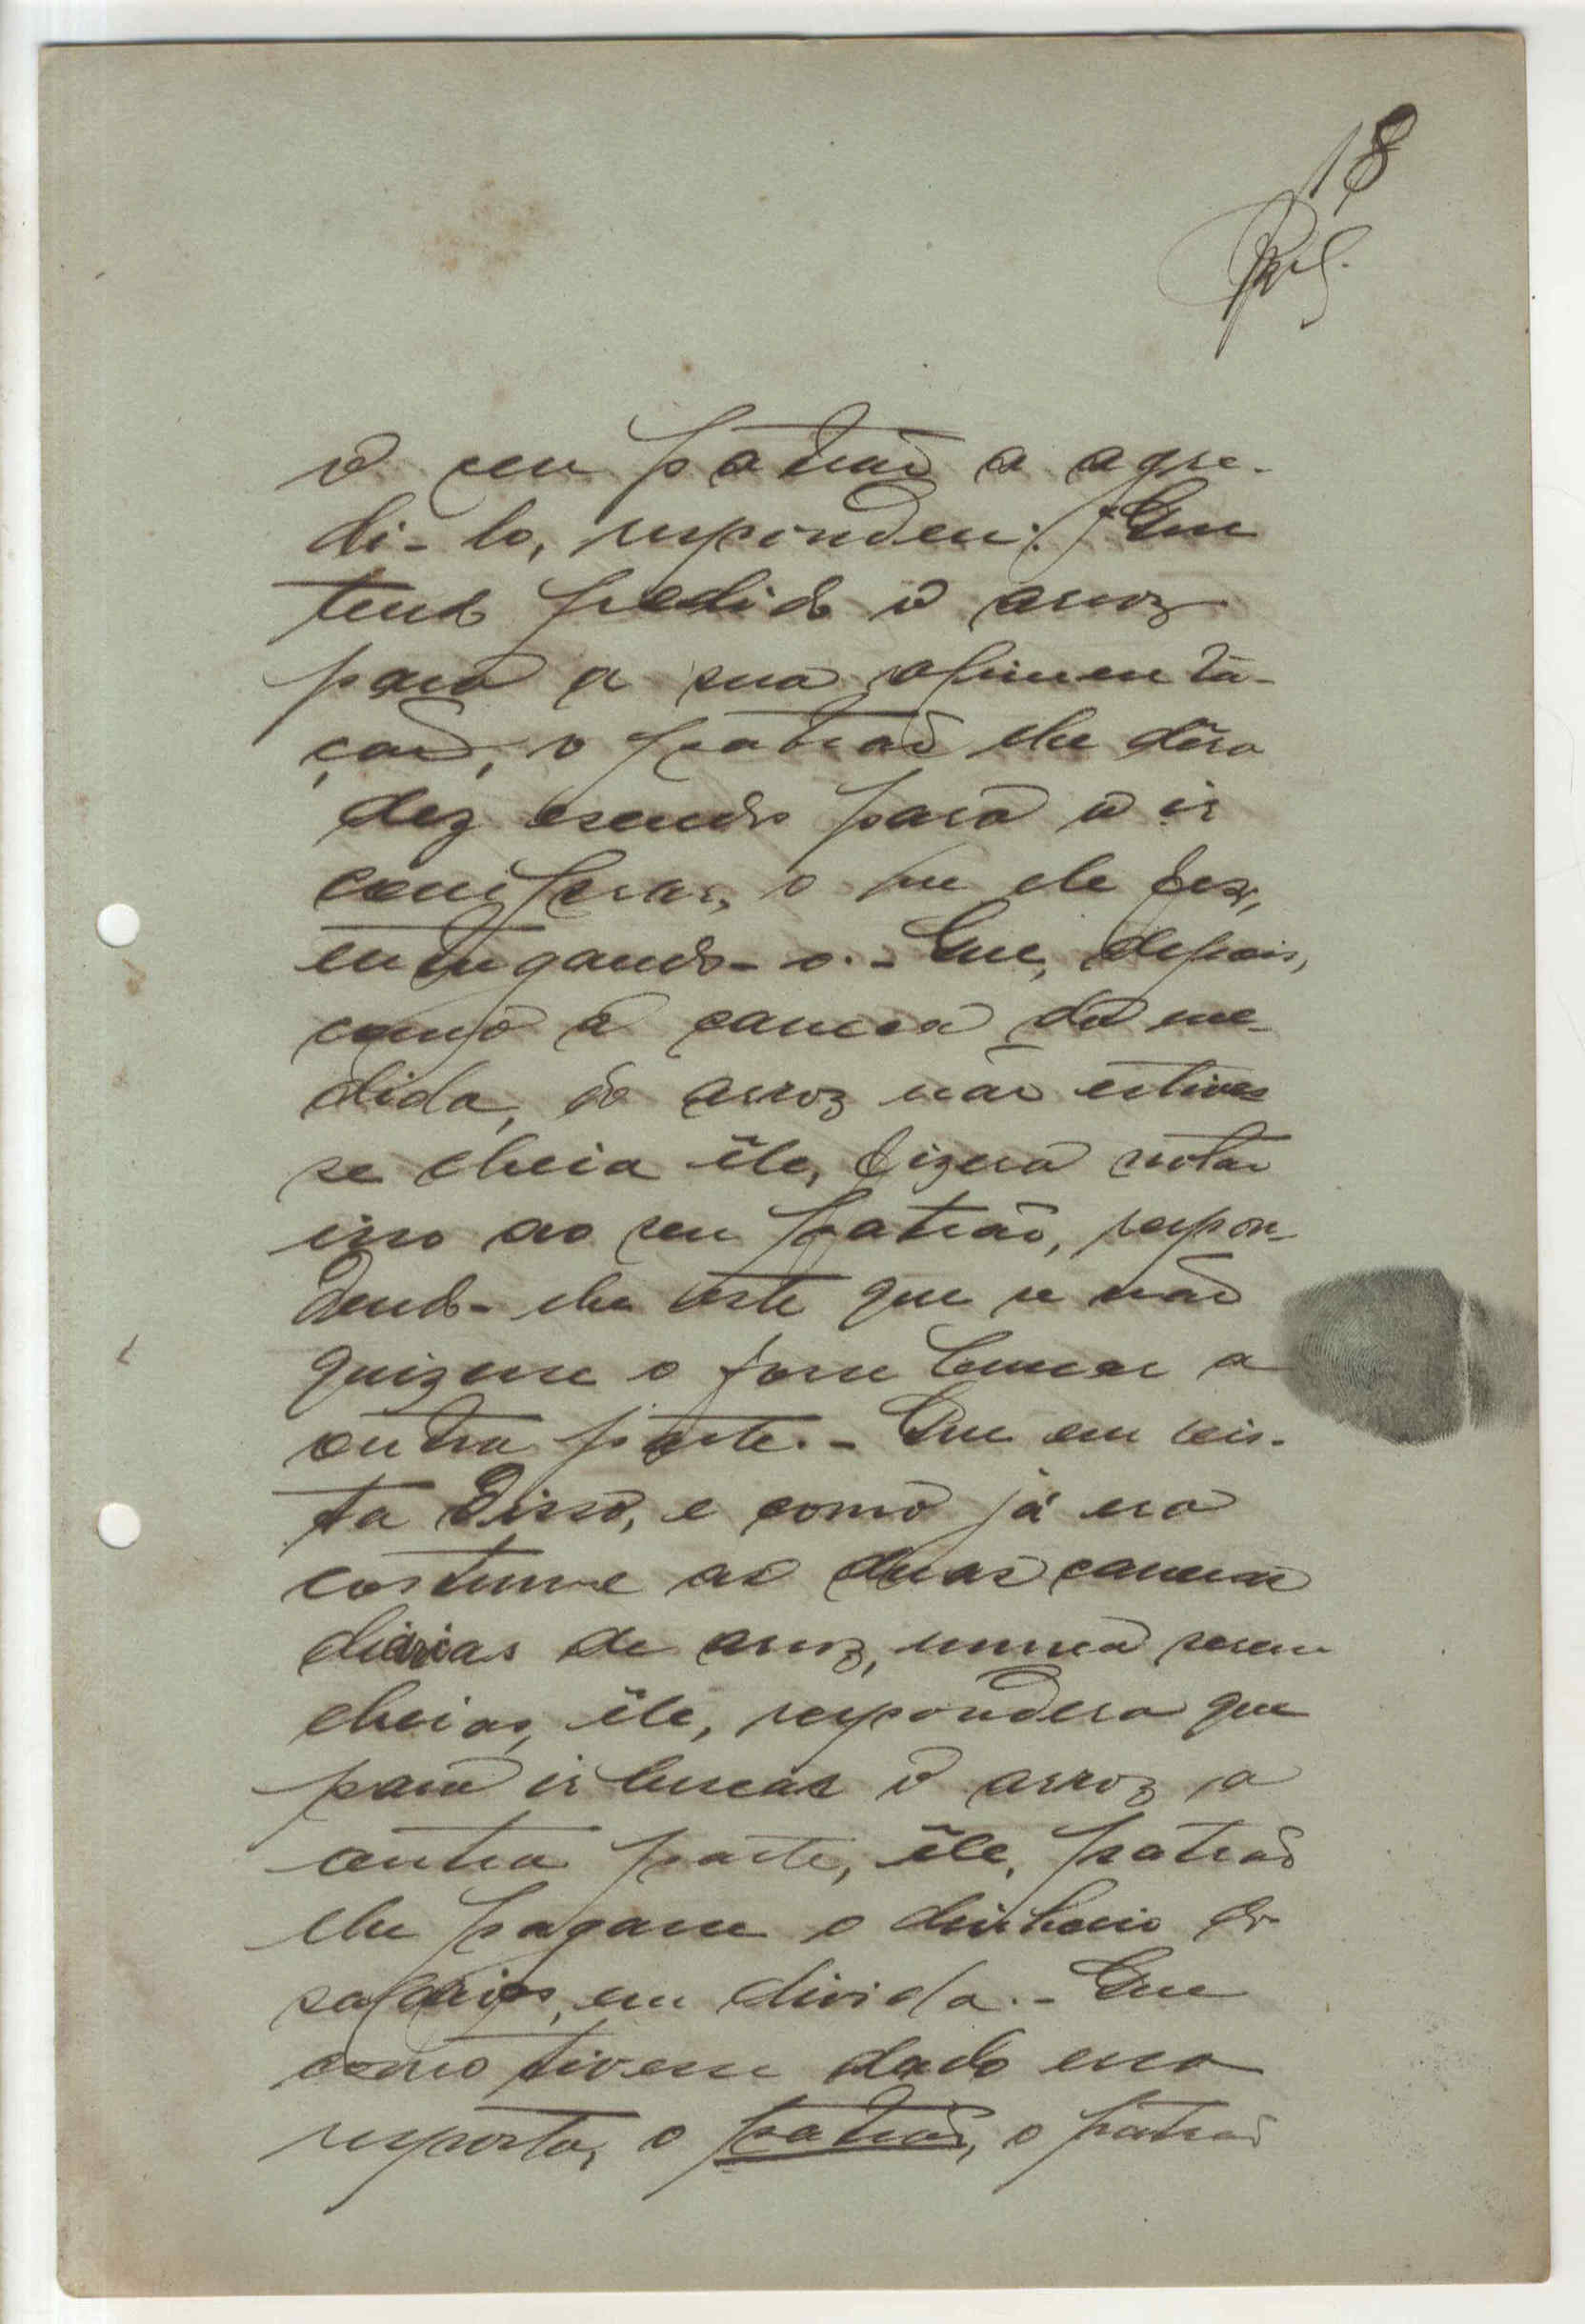 18
o seu patrão a agre-
di-lo, respondeu: Que
tendo pedido o arroz
para a sua alimenta-
ção, o patrão lhe déra
dez escudos para o ir
comprar, o que ele fez,
entregando-o.- Que, depois,
como a caneca da me-
dida, do arroz não estives
se cheia êle, fizera notar
isso ao seu patrão, respon-
dendo-lhe este que se não
quizesse o fosse buscar a
outra parte.- Que em vis-
ta disso, e como já era
costume as duas canecas
diarias de arroz, nunca serem
cheias, êle, respondera que
para ir buscar o arroz a
outra parte, êle, patrão
lhe pagasse o dinheiro dos
salarios, em divida.- Que
como tivesse dado essa
resposta, o patrão, o patrão